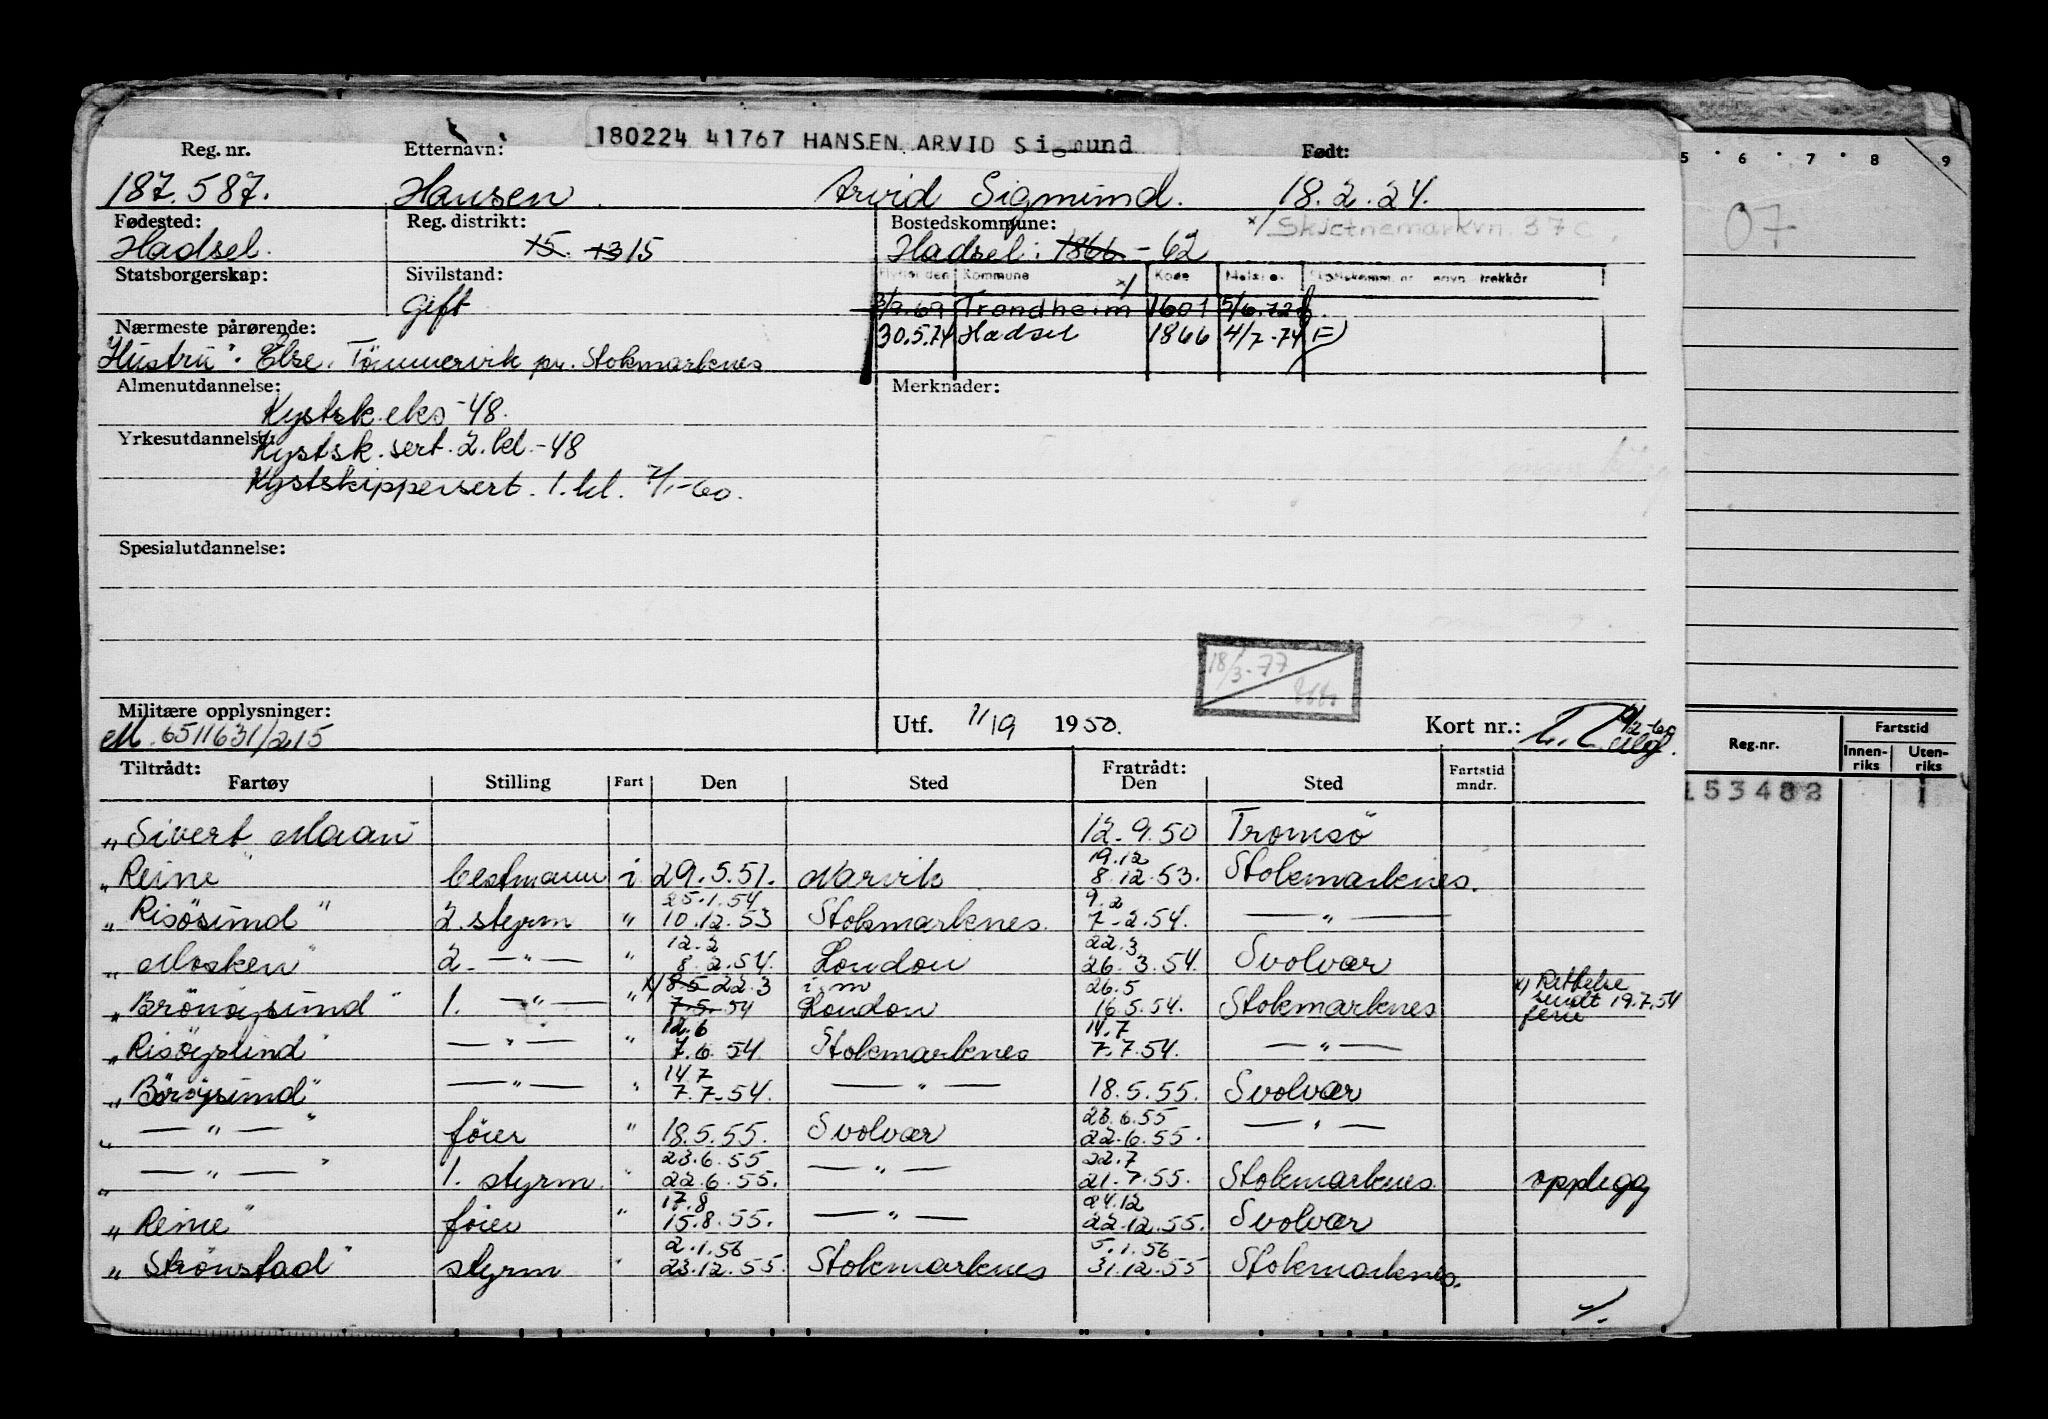 180224 41767 HANSEN ARVID Sigmund
Reg. nr. Etternavn: Født:
187.587. Hansen Arvid Sigmund. 18.2.24.
Fødested: Reg. distrikt: Bostedskommune: x/ Skjetnemarkvn. 37 c.
Hadsel. 15. 13 15 Hadsel: 1866 - 62
Statsborgerskap: Sivilstand: Flyttet den Kommune x/ Kode
gift
3/9.69 Trondheim 1601 5/6.72
Nærmeste pårørende:
30.5.74 Hadsel 1866 4/7.74
"Hustru": Else, Tömmervik pr. Stokmarknes
Almenutdannelse: Merknader:
Kystsk.eks -48.
Yrkesutdannelse:
Kystsk.sert.2.kl.-48
Kystskippersert. 1.kl. 7/1-60.
Spesialutdannelse:
18/3-77
Militære opplysninger: Utf. 1/19 1950. Kort nr.:
M. 6511631/215
Tiltrådt: Fratrådt:
Fartøy Stilling Fart Den Sted Den Sted Fartstid mndr.
"Sivert Maan 12.9.50 Tromsö
19.12
"Reine" bestmann i 29.5.51. Narvik 8.12.53. Stokmarknes.
25.1.54 9.2
"Risösund" 2. styrm " 10.12.53 Stokmarknes. 7.2.54. — " —
12.2 22.3
"Mosken" 2. — " — " 8.2.54. London 26.3.54. Svolvær
x) 8.5 22.3 i.m 26.5 x) Rettelse
"Brönöysund" 1. — " — " 7.5.54 London 16.5.54. Stokmarknes sendt 19.7.54
ferie
12.6 14.7
"Risöysund" — " — " 7.6.54. Stokmarknes 7.7.54. — " —
14.7
"Böröysund" — " — " 7.7.54. — " — 18.5.55. Svolvær
23.6.55
" — " — " förer " 18.5.55. Svolvær 22.6.55. — " —
23.6.55 22.7
" — " — " 1. styrm. " 22.6.55. — " — 21.7.55. Stokmarknes opplegg
17.8 24.12
"Reine" förer " 15.8.55. — " — 22.12.55. Svolvær
2.1.56 5.1.56
"Strönstad" styrm " 23.12.55. Stokmarknes 31.12.55 Stokmarknes.
5 6 7 8 9
07
Reg.nr. Fartstid
Innenriks Utenriks
153482 1